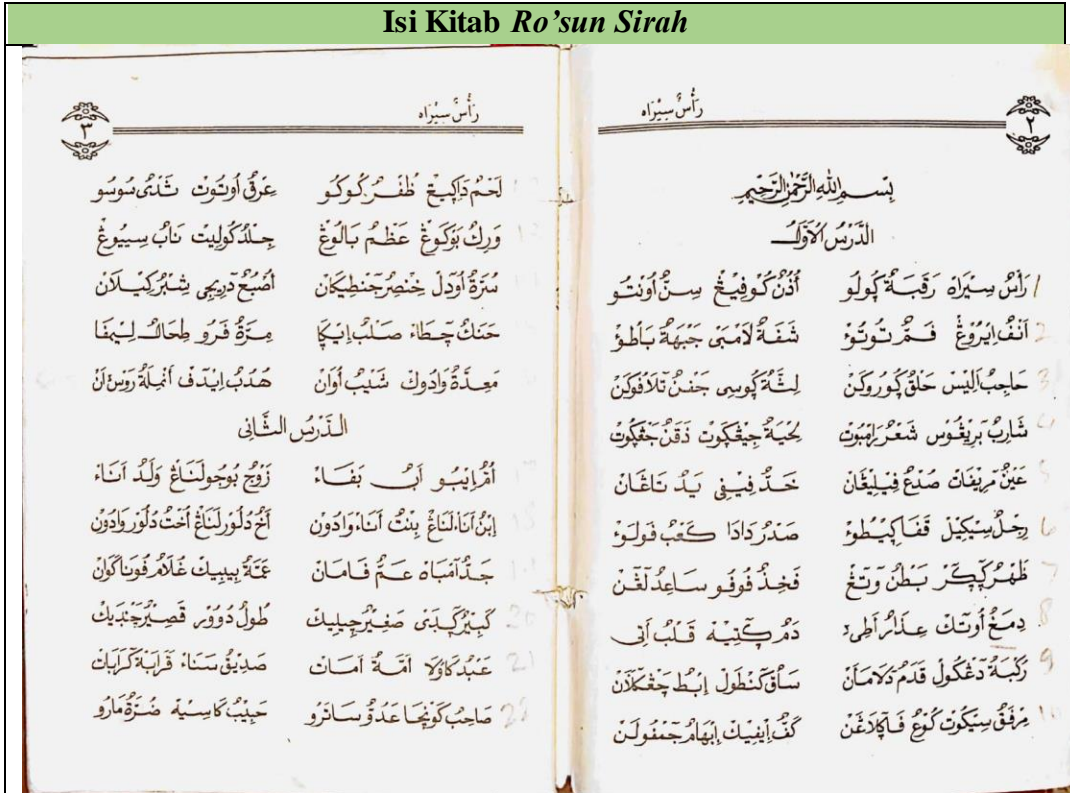 Isi Kitab Ro'sun Sirah
رَأْسٌ سِيْرَاه
٢
بِسْمِ اللهِ الرَّحْمٰنِ الرَّحِيْمِ
الدَّرْسُ الْاَوَّلُ
1 رَأْسٌ سِيْرَاهْ رَقَبَةٌ ڮُولُو أُذُنٌ كُوفِيْڠْ سِنٌّ أُوْنْتُو
2 اَنْفٌ اِيْرُوْڠْ فَمٌ تُوتُوْءْ شَفَةٌ لَامْبَيْ جَبْهَةٌ بَاطُوْءْ
3 حَاجِبٌ اَلِيْس حَلْقٌ ڮُورُوكَنْ لِثَّةٌ ڮُوسِى جَفْنٌ تْلَافُوكَنْ
4 شَارِبٌ بْرِيْڠُوْس شَعْرٌ رَامْبُوت لِحْيَةٌ جِيْڠْڮُوت ذَقَنٌ جَڠْڮُوت
5 عَيْنٌ مْرِيْفَات صُدْغٌ فِيْلِيْڠَان خَدٌّ فِيْفِى يَدٌ تَاڠَان
6 رِجْلٌ سِيْكِيْل قَفَا ڮِيْطُوْءْ صَدْرٌ دَادَا كَعْبٌ فَولَوْءْ
7 ظَهْرٌ ڮٓكٓرْ بَطْنٌ وَتٓڠْ فَخِذٌ فُوفُو سَاعِدٌ لَڠٓنْ
8 دِمَغٌ أُوتٓكْ عِذَارٌ اَطِيْ دَمٌ ڮٓتِيْهْ قَلْبٌ اَتِى
9 رُكْبَةٌ دٓڠْكُولْ قَدَمٌ دْلَامَأَنْ سَاقٌ كَنْطَولْ اِبْطٌ چَڠْكٓلَانْ
10 مِرْفَقٌ سِيْكُوْت كُوْعٌ فٓاڮٓادٓڠَنْ كَفٌّ اٖيْفٖيْك اِبْهَامٌ جٓمْفُولَنْ
رَأْسٌ سِيْرَاه
٣
لَحْمٌ دَاڮِيْڠْ ظُفُرٌ كُوكُو عِرْقٌ أُوتَوْت ثَدْىٌ سُوسُو
13 وَرِكٌ بَوْكَوْڠْ عَظْمٌ بَالُوْڠْ جِلْدٌ كُولِيْت نَابٌ سِيُوْڠْ
سُرَّةٌ أُوْدٓلْ خِنْصِرٌ جٓنْطِيْكَان أُصْبُعٌ دْرِيْجِى شِبْرٌ كِيْلَان
حَنَكٌ چٓطَاءْ صُلْبٌ اِيْڮَا مِرَّةٌ فٓرُو طِحَالٌ لِيْمْفَا
مَعِدَّةٌ وَادَوْك شَيْبٌ أُوَانْ هُدْبٌ اِيْدٓفْ اَنْمِلَةٌ رَوْسٰ اَنْ
الدَّرْسُ الثَّانِى
اُمٌّ اِيْبُو اَبٌ بَفَاءْ زَوْجٌ بُوجُو لَنَاڠْ وَلَدٌ اَنَاءْ
18 اِبْنٌ اَنَاءْ لَنَاڠْ بِنْتٌ اَنَاءْ وَادَوْن اَخٌ دُلُوْر لَنَاڠْ اُخْتٌ دُلُوْر وَادَوْن
19 جَدٌّ اَمْبَاهْ عَمٌّ فَامَانْ عَمَّةٌ بِيْبِيْك غُلَامٌ فُونَاكَوَان
20 كَبِيْرٌ ڮٓدَيْ صَغِيْرٌ چِيْلِيْك طُولٌ دُوْوُوْر قَصِيْرٌ چٓنْدَيْك
21 عَبْدٌ كَاوُلَا اَمَةٌ اَمَاتْ صَدِيْقٌ سَنَاءْ قَرَابَةٌ كٓرَابَات
22 صَاحِبٌ كَونْچَا عَدُوٌّ سَاتْرُو حَبِيْبٌ كَاسِيْهْ ضُرَّةٌ مَارُو